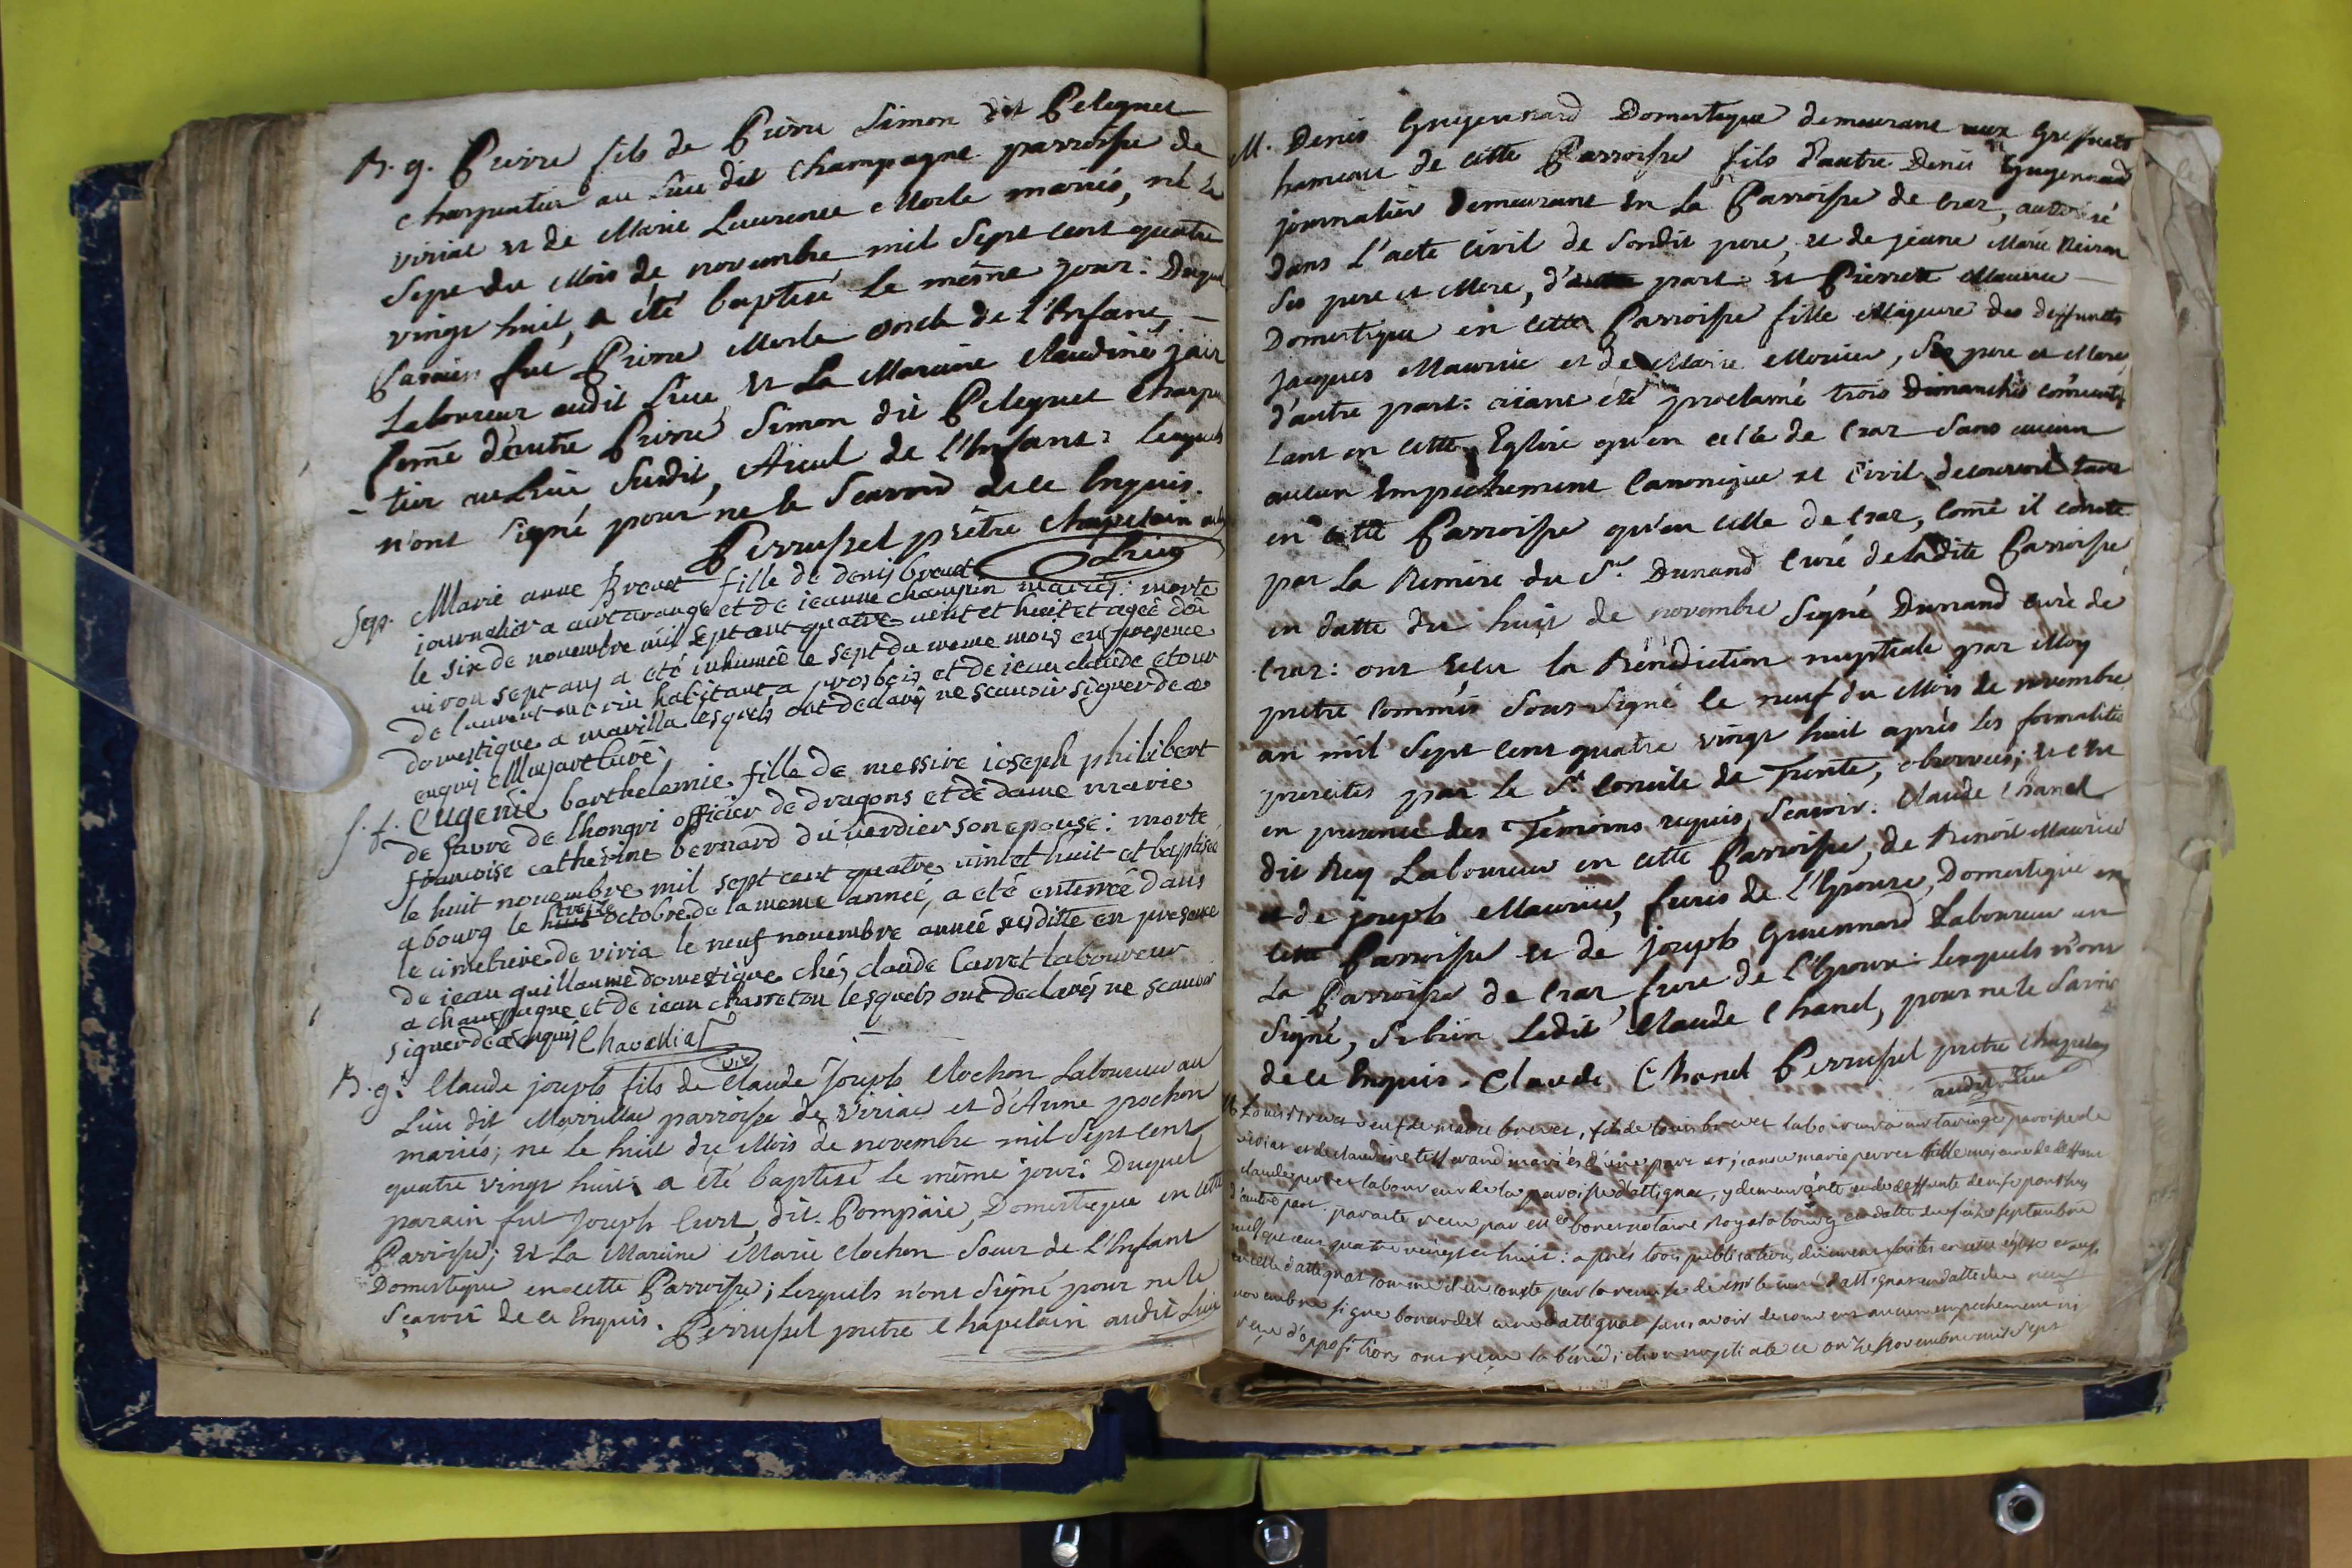 B. g. Pierre fils de Pierre Simon dit Pelegnet
charpentier au Lieu dit Champagne parroisse de
viriac et de Marie Laurence Morle mariés, né le
Sept du Mois de novembre mil Sept cent quatre
vingt huit, a été baptisé Le même jour: Duquel
Parain fut Pierre Morle oncle de l'Enfant, —
Laboureur audit Lieu, et La Maraine Claudine
femē d'autre Pierre Simon dit Pelegnet Charpen
- tier au Lieu Susdit, Aieul de l'Enfant: lesquels
n'ont Signé pour ne le Scavoir de ce Enquis.
Perrussel prêtre chapelain audit
Lieu
Sep. Marie anne Brevet fille de denis brevet
journalier a et de jeanne champin mariés: morte
le six de novembre mil sept cent quatre vint et huit et agée den
viron sept ans a été inhumée le sept du meme mois en presence
de laurent habitant a et de jean claude
domestique a marilla lesquels ont declaré ne scauoir signer de ce
enquis curé
S. f. Eugenie barthelemie fille de messire joseph philibert
de favre de longri officier de dragons et de dame marie
francoise catherine bernard du verdier son epouse: morte
le huit nouembre mil sept cent quatre vint et huit et baptisée
a bourg le huit treize octobre de la meme année, a eté enterrée dans
le cimetiere de viria le neuf nouembre année susditte en presence
de jean guillaume domestique chés claude Carret laboureur
a champagne et de jean charreton lesquels ont declarés ne scauoir
signer de ce enquis Chavallias
vic
B. g. Claude joseph fils de Claude Joseph Clochon Laboureur au
Lieu dit Marillac parroisse de Viriac et d'Anne pochon
mariés; né le huit du Mois de novembre mil Sept cent
quatre vingt huit a été baptisé le même jour: Duquel
parain fut Joseph Curt dit Pompäie, Domestique en cette
Parroisse; et La Maraine Marie Clochon Soeur de l'Enfant
Domestique en cette Parroisse; Lesquels n'ont Signé pour ne le
Sçavoir de ce Enquis. Perrussel pretre Chapelain audit Lieu
M. Denis Guyennard Domestique demeurant aux Greffets
hameau de cette Parroisse fils d'autre Denis Guyennard
journalier Demeurant en La Parroisse de Cras, autorisé
dans l'acte Civil de Sondit pere, et de jeane Marie
Ses pere et Mere, d'une part: et Pierrette Maurice —
Domestique en cette Parroisse fille Majeure des deffuncts
Jacques Maurice et de Marie Morier, Ses pere et Mere,
d'autre part: aiant été proclamé trois Dimanches consecutifs
tant en cette Eglise qu'en celle de Cras Sans aucun
aucun Empechement Canonique et Civil decouvert tant
en cette Parroisse qu'en celle de Cras, come il conste
par La Remise du Sr. Dunand Curé de ladite Parroisse
en datte du huit de novembre Signé Dunand curé de
Cras: ont reçu la Bénédiction nuptiale par Moy
pretre Commis Sous-Signé le neuf du Mois de novembre
an mil Sept cent quatre vingt huit après les formalités
prescrites par le St. Concile de Trente, observées; et en
en presence des Temoins requis, Scavoir: Claude Chanel
dit Rey Laboureur en cette Parroisse, de Benoit Maurice
et de joseph Maurice, freres de l'Epouse, Domestique en
cette Parroisse et de Joseph Guyennard Laboureur en
La Parroisse de Cras, frere de l'Epoux: lesquels n'ont
Signé, Si bien Ledit Claude Chanel, pour ne le Savoir
de ce Enquis. Claude Chanel Perrussel pretre chapelain
audit Lieu
M Louis Brevet veuf de marie brevet, fils de Louis brevet laboureur parroisse de
viriac et de claudine mariés d'une part et jeanne marie perret fille majeure de deffunt
claude perret laboureur de la paroisse d'attignac, y demeurante et de deffunte denise
d'autre part. par acte recu par me bonet notaire Royal a bourg en datte du seize septembre
mil sept cent quatre vingt et huit: aprés trois publications duement faites en cette eglise
en celle d'attignat comme il en conste par la remise de mr le curé d'attignat en datte du neuf
novembre signé bonardel curé d'attignat sans avoir decouvert aucun empechement ni
recu d'oppositions ont reçu la bénédiction nuptiale ce onze novembre mil sept